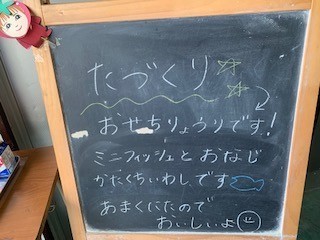 たづくり
おせちりょうりです!
ミニフィッシュとおなじ
かたくちいわしです
あまくにたので
おいしいよ